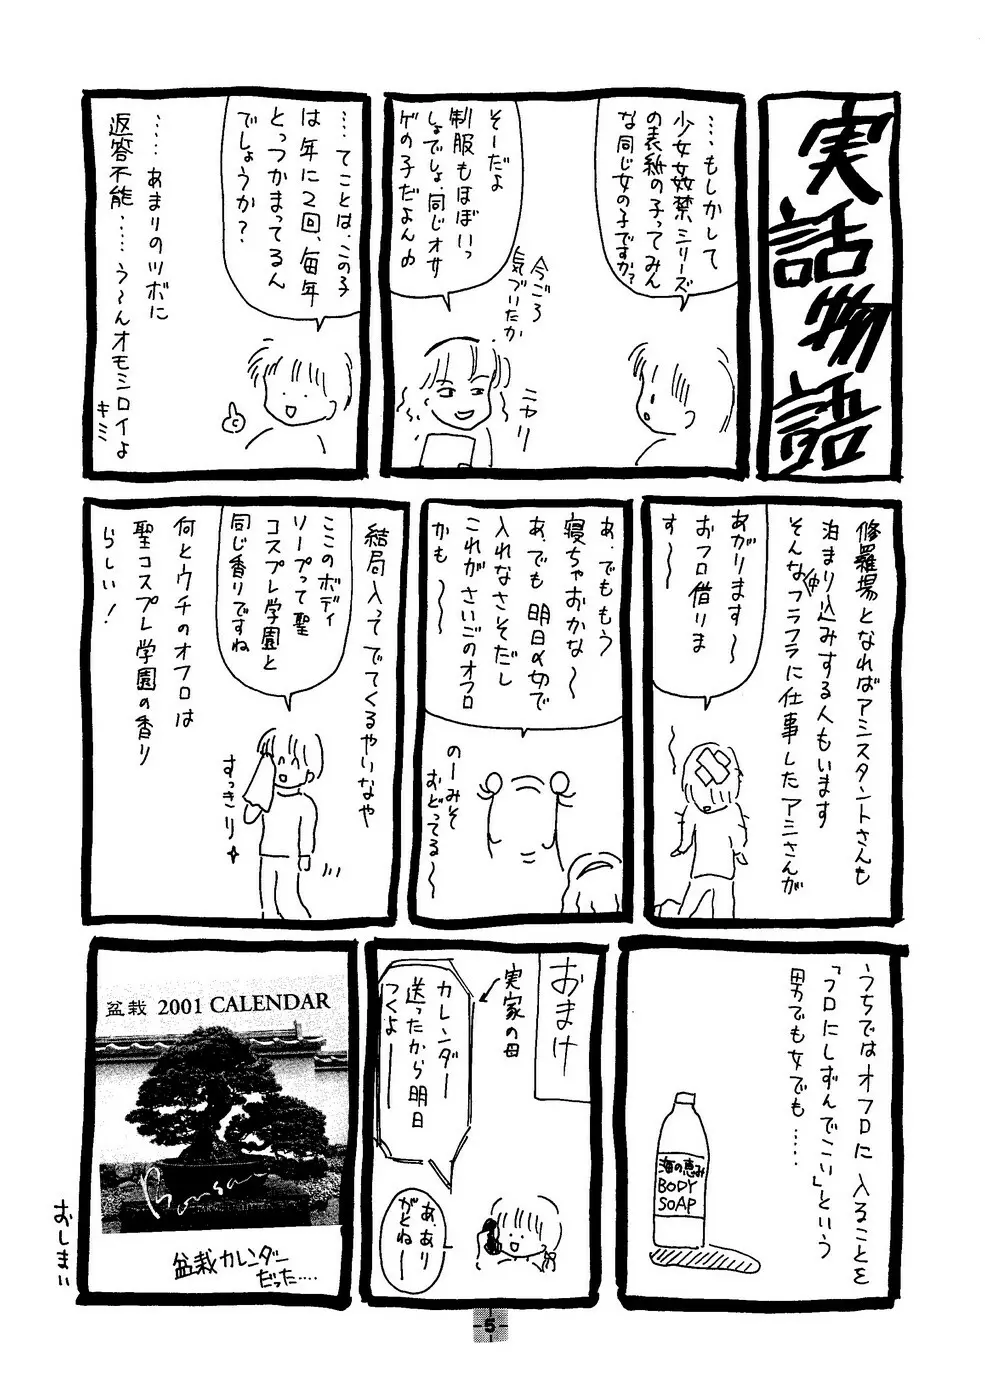 実話物語
‥‥もしかして
少女姦禁シリーズ
の表紙の子ってみん
な同じ女の子ですか?
今ごろ
気づいたか
ニヤリ
そーだよ
制服もほぼいっ
しょでしょ、同じオサ
ゲの子だよん♪
‥‥てことは、この子
は年に2回、毎年
とっつかまってるん
でしょうか?
‥‥あまりのツボに
返答不能‥‥う〜んオモシロイよ
キミ
修羅場となればアシスタントさんも
泊まり込みする人もいます
そんな中フラフラに仕事したアシさんが
あがります〜
おフロ借りま
す〜
あ、でももう
寝ちゃおかな〜
あ、でも明日〆切で
入れなさそだし
これがさいごのオフロ
かも〜
のーみそ
おどってる〜
結局入ってでてくるやいなや
ここのボディ
ソープって聖
コスプレ学園と
同じ香りですね
すっきり
何とウチのオフロは
聖コスプレ学園の香り
らしい!
うちではオフロに入ることを
「フロにしずんでこい」という
男でも女でも‥‥
海の恵み
BODY
SOAP
おまけ
実家の母
カレンダー
送ったから明日
つくよー
あ、あり
がとねー
盆栽 2001 CALENDAR
Bonsai
盆栽カレンダー
だった‥‥
おしまい
5